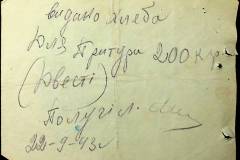 видано Хлеба
Юлз Притури 200 кгр
(Двесті)
Получіл
22-9-43г